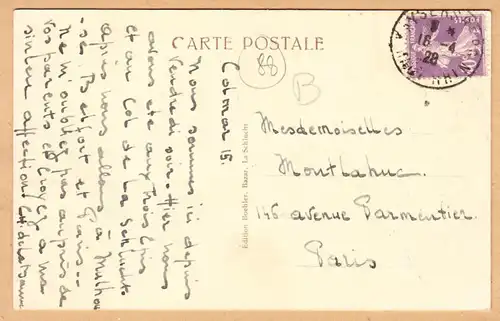 CARTE POSTALE
88
B
Colmar 15.
Nous sommes ici depuis
Vendredi soir. Hier nous
avons été aux Trois Epis
et au Col de la Schlucht
après nous allons à Mulhou
se, Belfort et Paris.
Ne m'oubliez pas auprès de
vos parents et croyez à ma
sincère affection.
Edition Boehler, Bazar, La Schlucht
Mesdemoiselles
Montlahuc
146 avenue Parmentier
Paris
16 - 4
28
RHIN